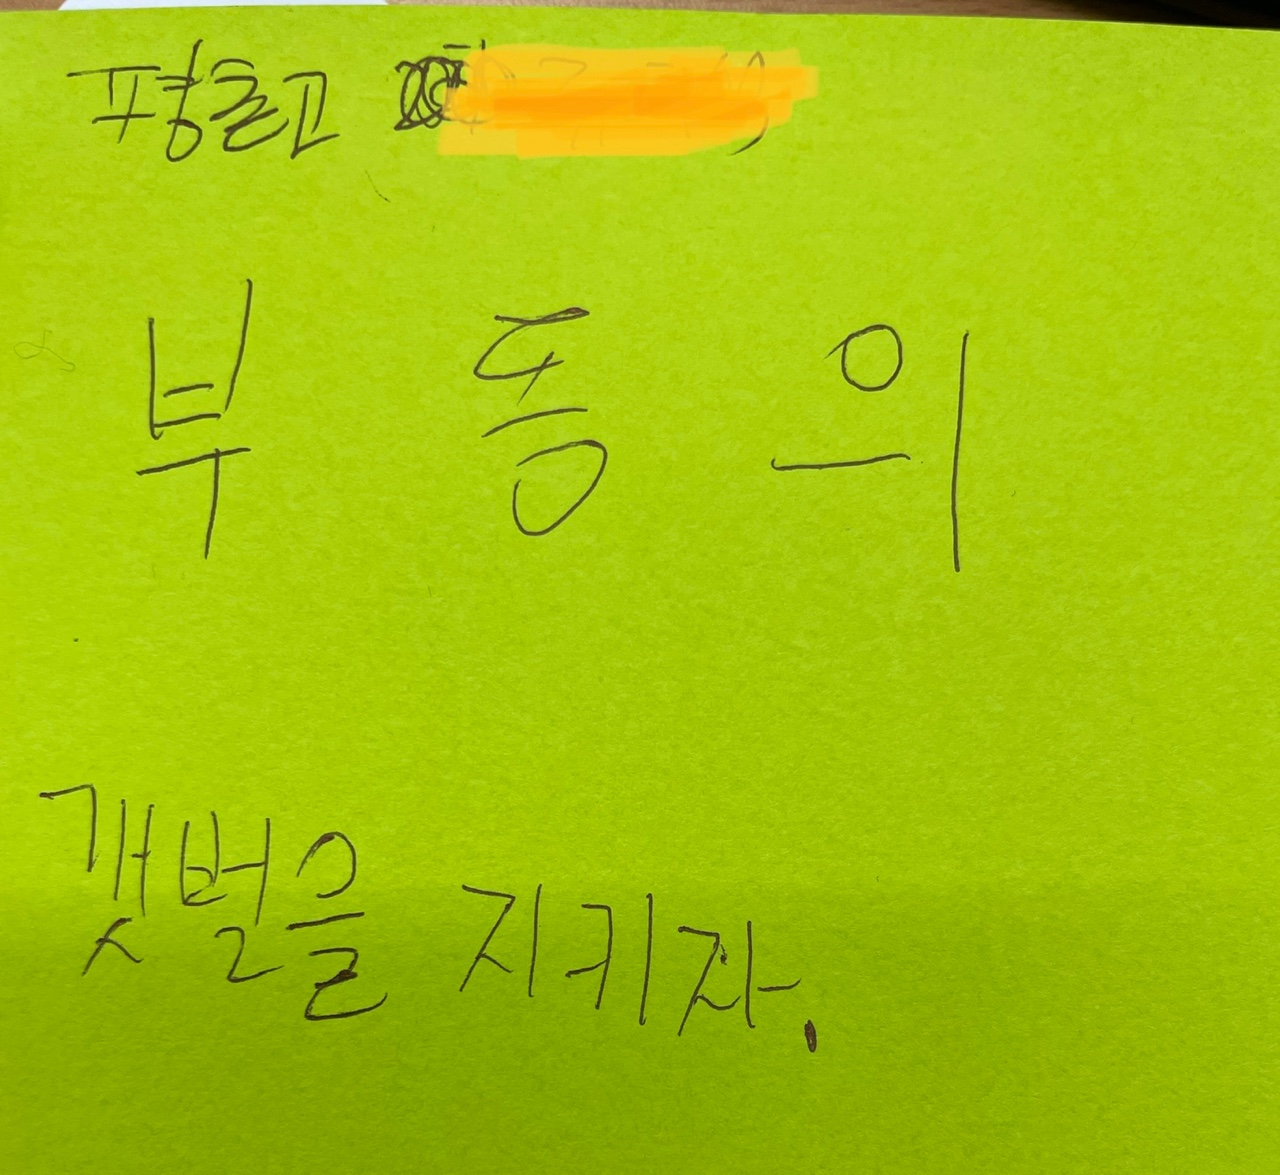 평촌고
부 동 의
갯벌을 지키자.